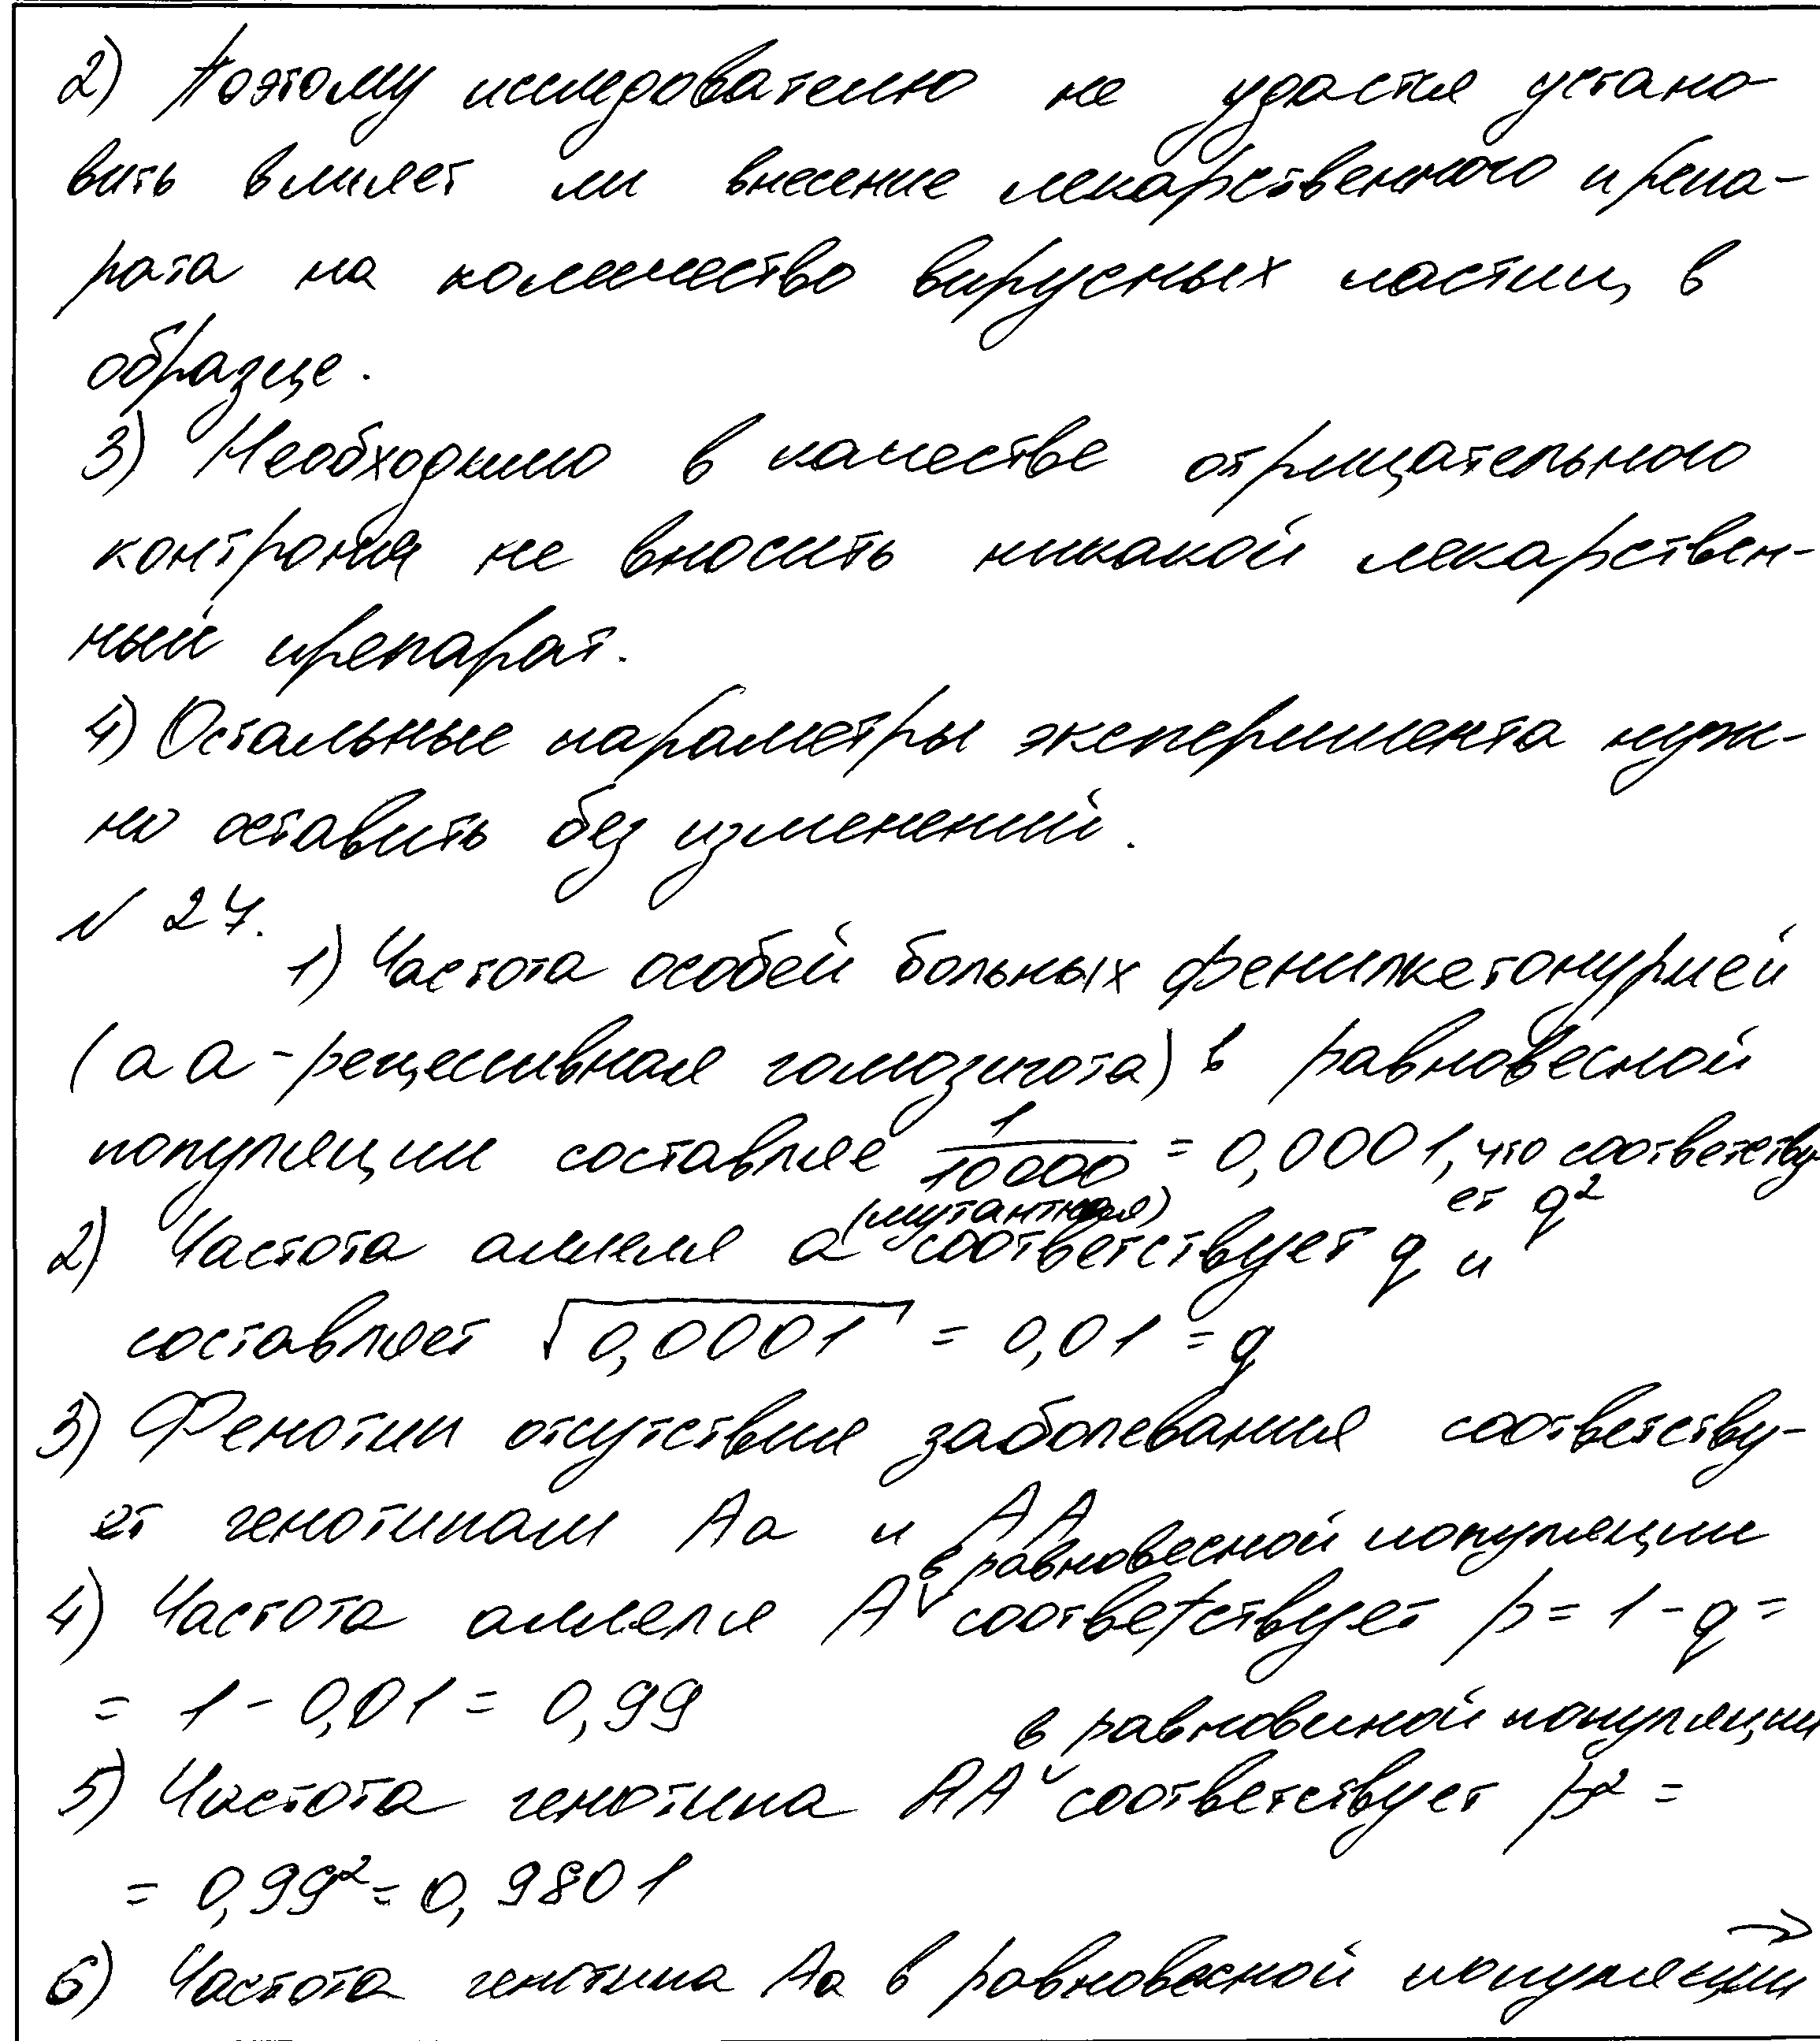 2) Поэтому исследователю не удастся устано-
вить влияет ли внесение лекарственного препа-
рата на количество вирусных частиц в
образце.
3) Необходимо в качестве отрицательного
контроля не вносить никакой лекарствен-
ный препарат.
4) Остальные параметры эксперимента нуж-
но оставить без изменений.
N 27.
1) Частота особей больных фенилкетонурией
(aa - рецессивная гомозигота) в равновесной
популяции составляе 1/10000 = 0,0001, что соответству-
ет q²
(мутантная)
2) Частота аллеля a соответствует q и
составляет √0,0001 = 0,01 = q
3) Фенотип отсутствия заболевания соответству-
ет генотипам Aa и AA
в равновесной популяции
4) Частота аллеля A соответствует p = 1 - q =
= 1 - 0,01 = 0,99
в равновесной популяции
5) Частота генотипа AA соответствует p² =
= 0,99² = 0,9801
6) Частота генотипа Aa в равновесной популяции →